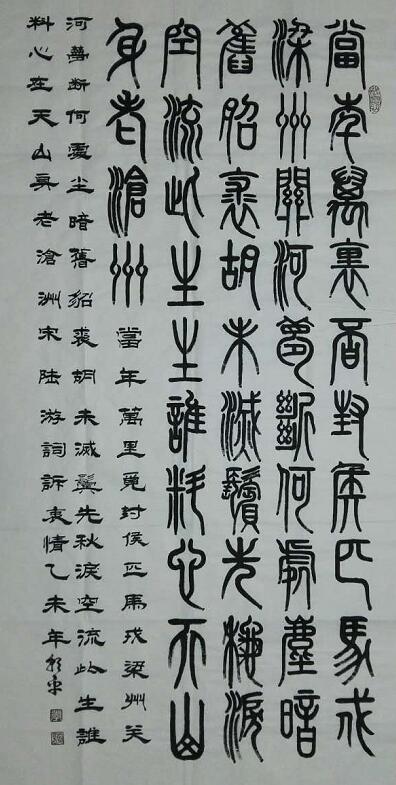 當年萬裏覓封侯匹馬戍
梁州關河夢斷何處塵暗
舊貂裘胡未滅鬢先秋淚
空流此生生誰料心天山
身老滄州
當年萬里覓封侯匹馬戍梁州关
河夢断何處尘暗舊貂裘胡未滅鬓先秋淚空流此生誰
料心在天山身老滄洲宋陆游詞訴衷情乙未年